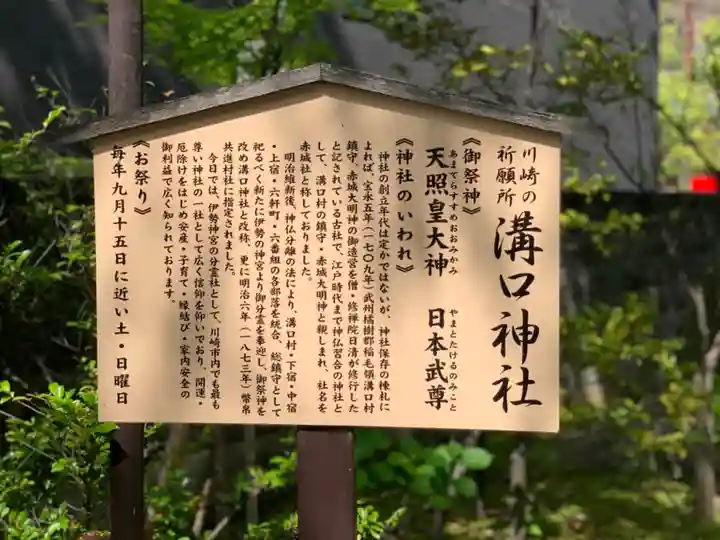 川崎の
祈願所
溝口神社
《御祭神》
あまてらすすめおおみかみ
天照皇大神
やまとたけるのみこと
日本武尊
《神社のいわれ》
神社の創立年代は定かではないが、神社保存の棟札に
よれば、宝永五年（一七〇九年）武州橘樹郡稲毛領溝口村
鎮守、赤城大明神の御造営を僧・修禅院日清が修行した
と記されている古社で、江戸時代まで神仏習合の神社と
して、溝口村の鎮守・赤城大明神と親しまれ、社名を
赤城社と称しておりました。
明治維新後、神仏分離の法により、溝口村・下宿・中宿
・上宿・六軒町・六番組の各部落を統合、総鎮守として
祀るべく新たに伊勢の神宮より御分霊を奉迎し、御祭神を
改め溝口神社と改称、更に明治六年（一八七三年）幣帛
共進村社に指定されました。
今日では、伊勢神宮の分霊社として、川崎市内でも最も
尊い神社の一社として広く信仰を仰いでおり、開運・
厄除けをはじめ安産・子育て・縁結び・家内安全の
御利益で広く知られております。
《お祭り》
毎年九月十五日に近い土・日曜日